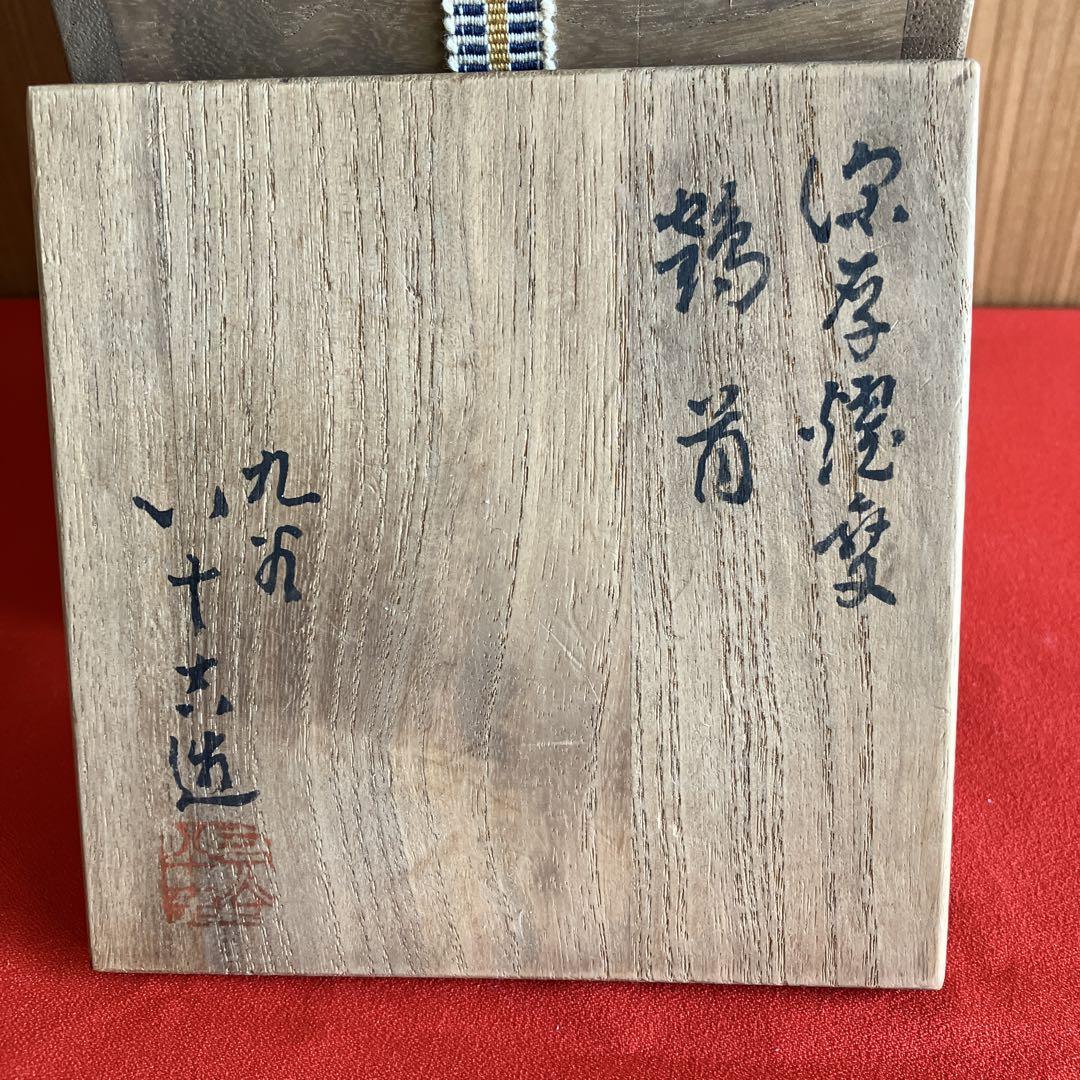 深厚燿変
鶴首
九谷
八十吉造